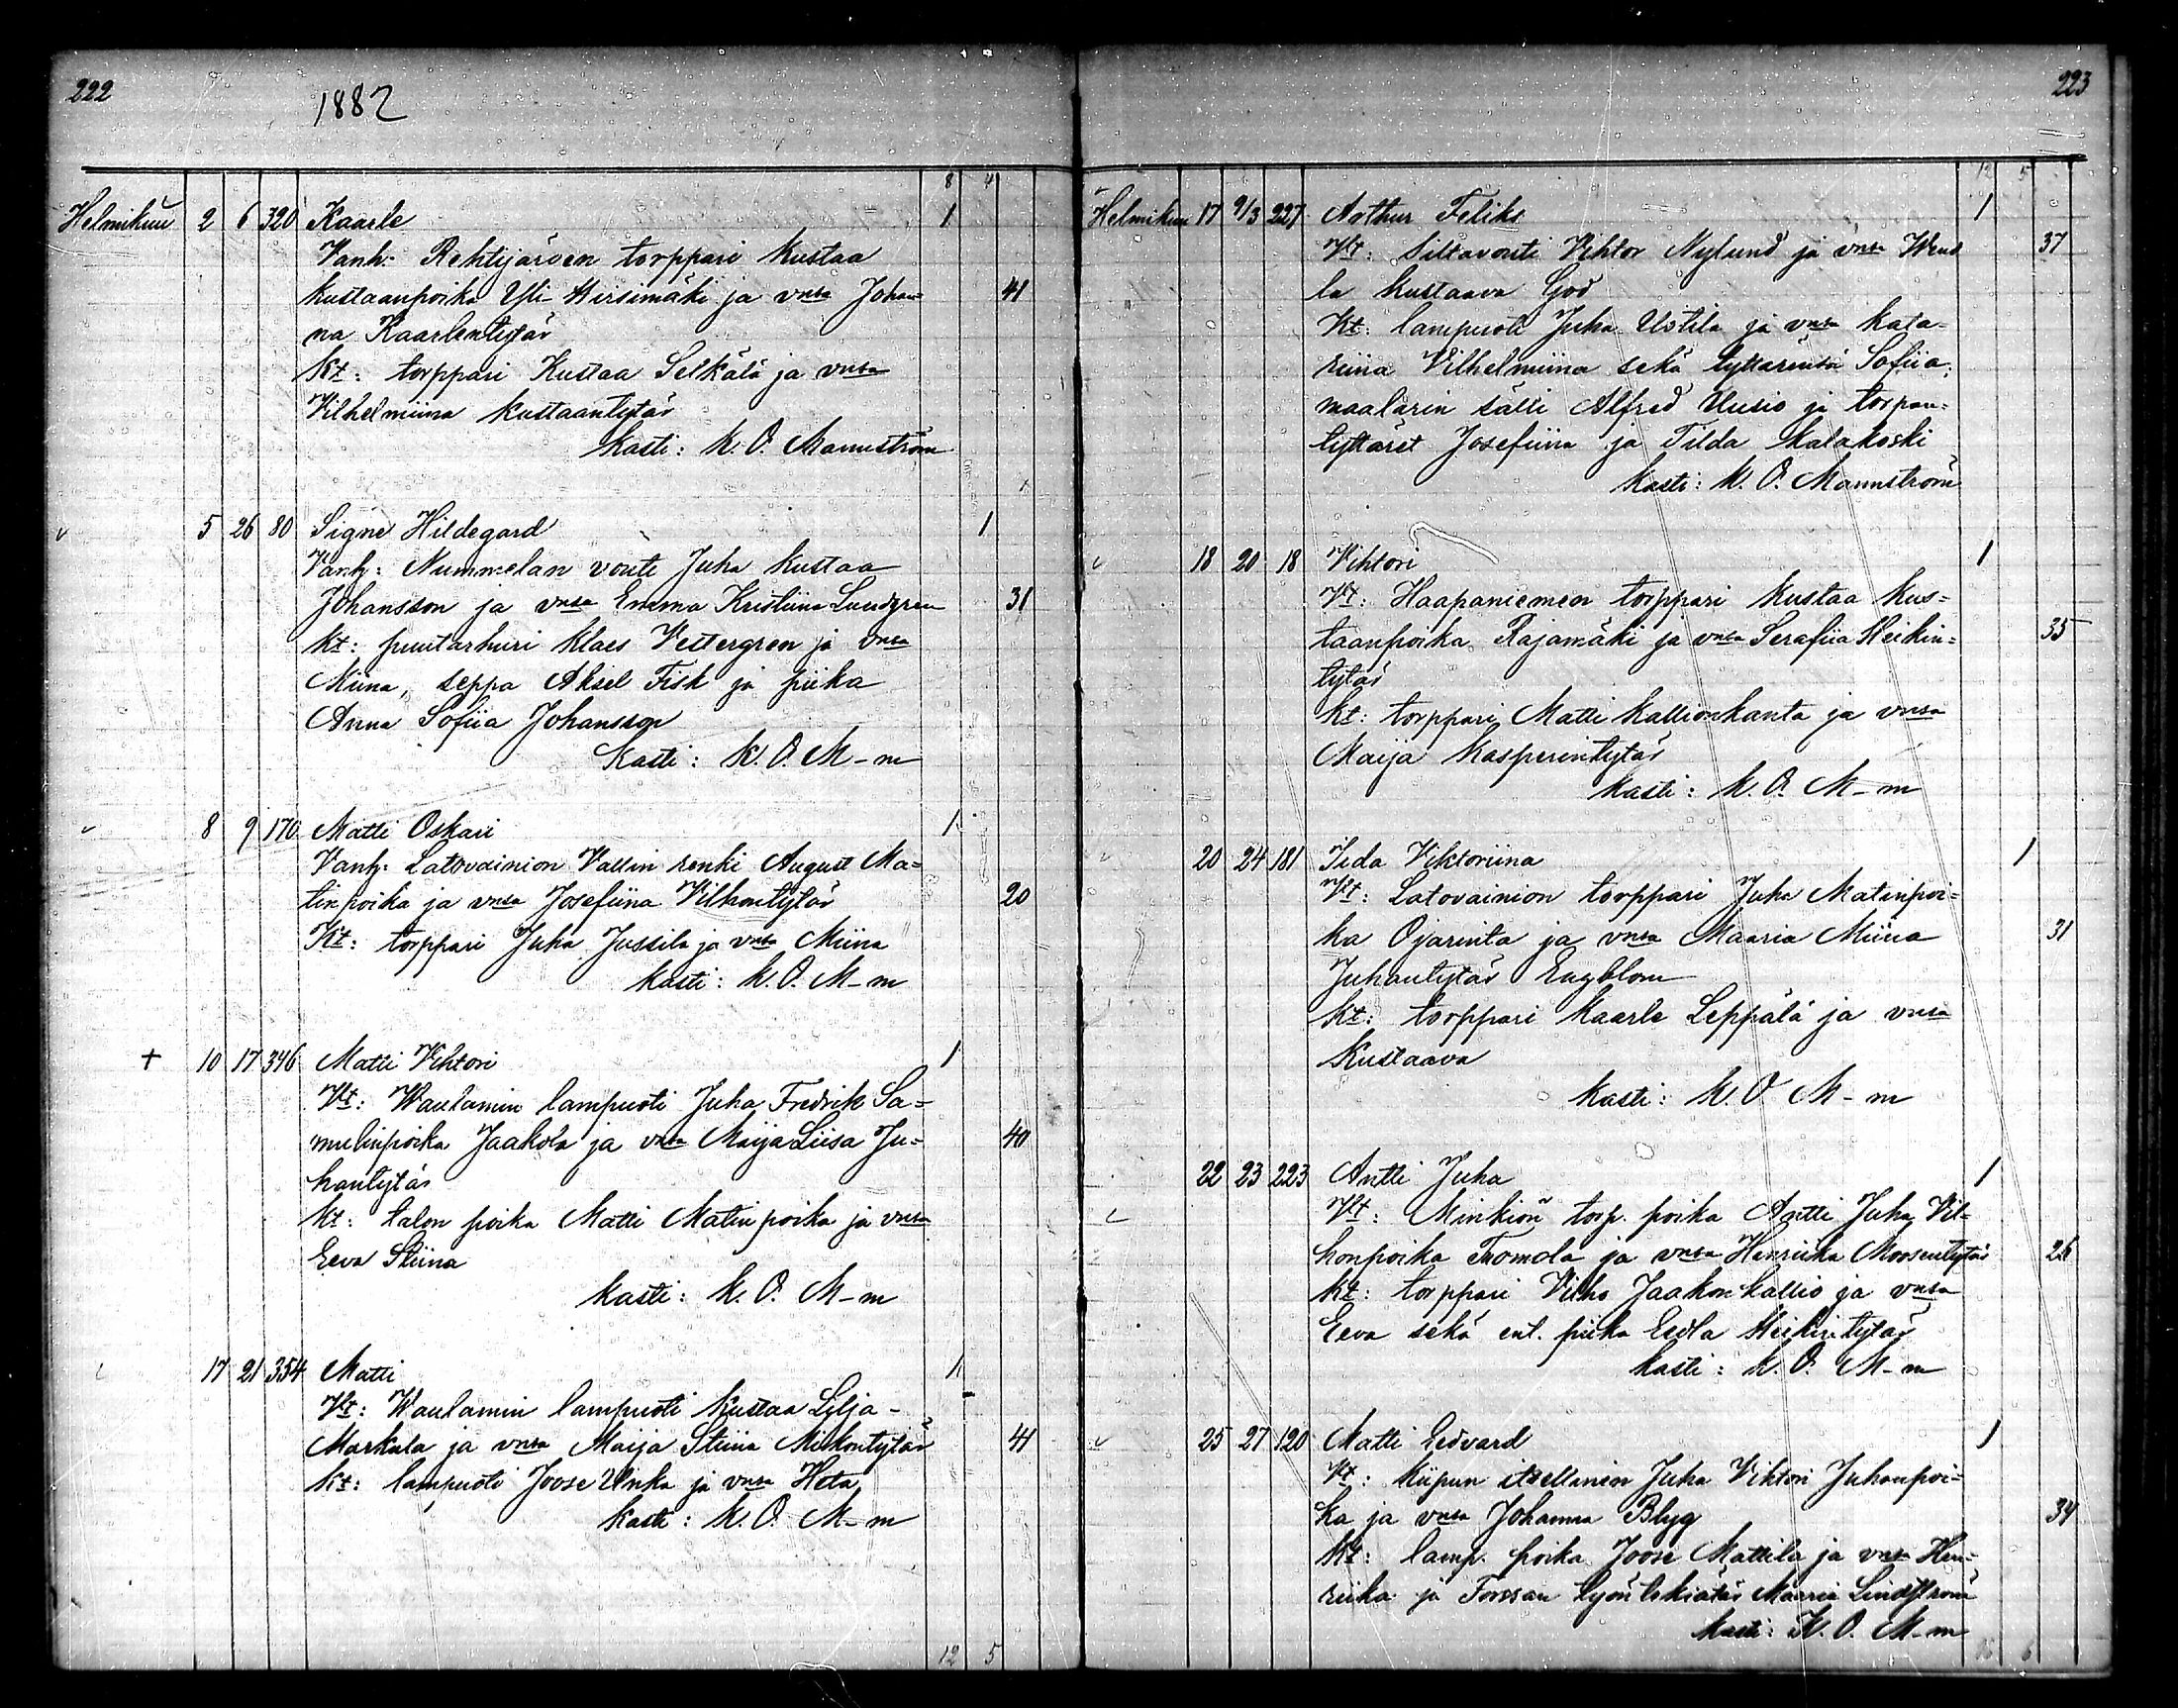 222
1882
8 4
Helmikuu 2 6 320 Kaarle 1
Vanh: Rehtijärven torppari Kustaa
Kustaanpoika Yli-Hirsimäki ja vnsa Johan= 41
na Kaarlentytär
Kt: torppari Kustaa Selkälä ja vnsa
Vilhelmiina Kustaantytär
Kasti: K. O. Mannström
5 26 80 Signe Hildegard 1
Vanh: Nummelan vouti Juha Kustaa
Johansson ja vnsa Emma Kristiina Lundgren 31
Kt: puutarhuri Klaes Vestergren ja vnsa
Miina, seppä Aksel Fisk ja piika
Anna Sofiia Johansson
Kasti: K. O. M-m
8 9 170 Matti Oskari 1
Vanh: Latovainion Vallin renki August Ma=
tinpoika ja vnsa Josefiina Vilhontytär 20
Kt: torppari Juha Jussila ja vnsa Miina
Kasti: K. O. M-m
+ 10 17 346 Matti Vihtori 1
Vt: Waulamin lampuoti Juha Fredrik Sa=
mulinpoika Jaakola ja vnsa Maija Liisa Ju= 40
hantytär
Kt: talon poika Matti Matinpoika ja vnsa
Eeva Stiina
Kasti: K. O. M-m
17 21 354 Matti 1
Vt: Waulamin lampuoti Kustaa Lilja-
Markula ja vnsa Maija Stiina Mikontytär 41
Kt: lampuoti Joose Unka ja vnsa Heta
Kasti: K. O. M-m
12 5
223
12 5
Helmikuu 17 9/3 227 Arthur Feliks 1
Vt: Siltavouti Vihtor Nylund ja vnsa Wend 37
la Kustaava God
Kt: lampuoti Juha Uotila ja vnsa Kata-
riina Vilhelmiina sekä tyttärensä Sofiia,
maalarin sälli Alfred Uusio ja torpan=
tyttäret Josefiina ja Tilda Kalakoski
Kasti: K. O. Mannström
18 20 18 Vihtori 1
Vt: Haapaniemen torppari Kustaa Kus=
taanpoika Rajamäki ja vnsa Serafiia Heikin= 35
tytär
Kt: torppari Matti Kallionkanta ja vnsa
Maija Kasperintytär
Kasti: K. O. M-m
20 24 181 Iida Viktoriina 1
Vt: Latovainion torppari Juha Matinpoi=
ka Ojarinta ja vnsa Maaria Miina 31
Juhantytär Engblom
Kt: torppari Kaarle Leppälä ja vnsa
Kustaava
Kasti: K. O M-m
22 23 223 Antti Juha 1
Vt: Minkiön torp. poika Antti Juha Vil=
honpoika Tuomola ja vnsa Henriika Moosentytär 26
Kt: torppari Vilho Jaakonkallio ja vnsa
Eeva sekä ent. piika Eedla Heikintytär
Kasti: K. O. M-m
25 27 120 Matti Edvard 1
Vt: Kiipun itsellinen Juha Vihtori Juhanpoi=
ka ja vnsa Johanna Blyg 34
Kt: lamp. poika Joose Mattila ja vnsa Hen=
riika ja Forssan työn tekiätär Maaria Lindström
Kasti: K. O. M-m
6